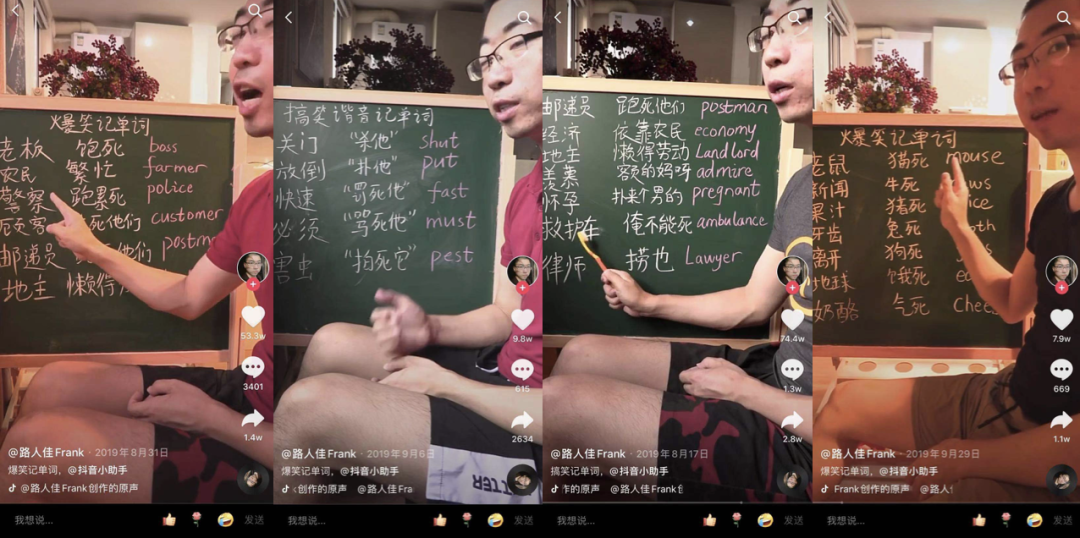 爆笑记单词
老板 饱死 boss
农民 繁忙 farmer
警察 跑累死 police
死他们 customer
邮递员 他们 postm
地主 懒得
53.3w
3401
1.4w
@路人佳Frank · 2019年8月31日
爆笑记单词，@抖音小助手
@路人佳Frank创作的原声
我想说... 发送
搞笑谐音记单词
关门 “杀他” shut
放倒 “扑他” put
快速 “罚死他” fast
必须 “骂死他” must
害虫 “拍死它” pest
9.8w
615
2634
@路人佳Frank · 2019年9月6日
爆笑记单词，@抖音小助手
创作的原声 @路人佳Fra
TTER
我想说... 发送
邮递员 跑死他们 postman
经济 依靠农民 economy
地主 懒得劳动 Landlord
羡慕 额的妈呀 admire
怀孕 扑某个男的 pregnant
救护车 俺不能死 ambulance
律师 捞也 Lawyer
74.4w
1.3w
2.8w
@路人佳Frank · 2019年8月17日
搞笑记单词，@抖音小助手
作的原声 @路人佳Frank
我想说... 发送
爆笑记单词
老鼠 猫死 mouse
新闻 牛死 ws
果汁 猪死 ice
牙齿 兔死 th
离开 狗死
地球 饿死 ea
奶酪 气死 chees
7.9w
669
1.1w
@路人佳Frank · 2019年9月29日
爆笑记单词，@抖音小助手
Frank创作的原声 @路人
我想说... 发送